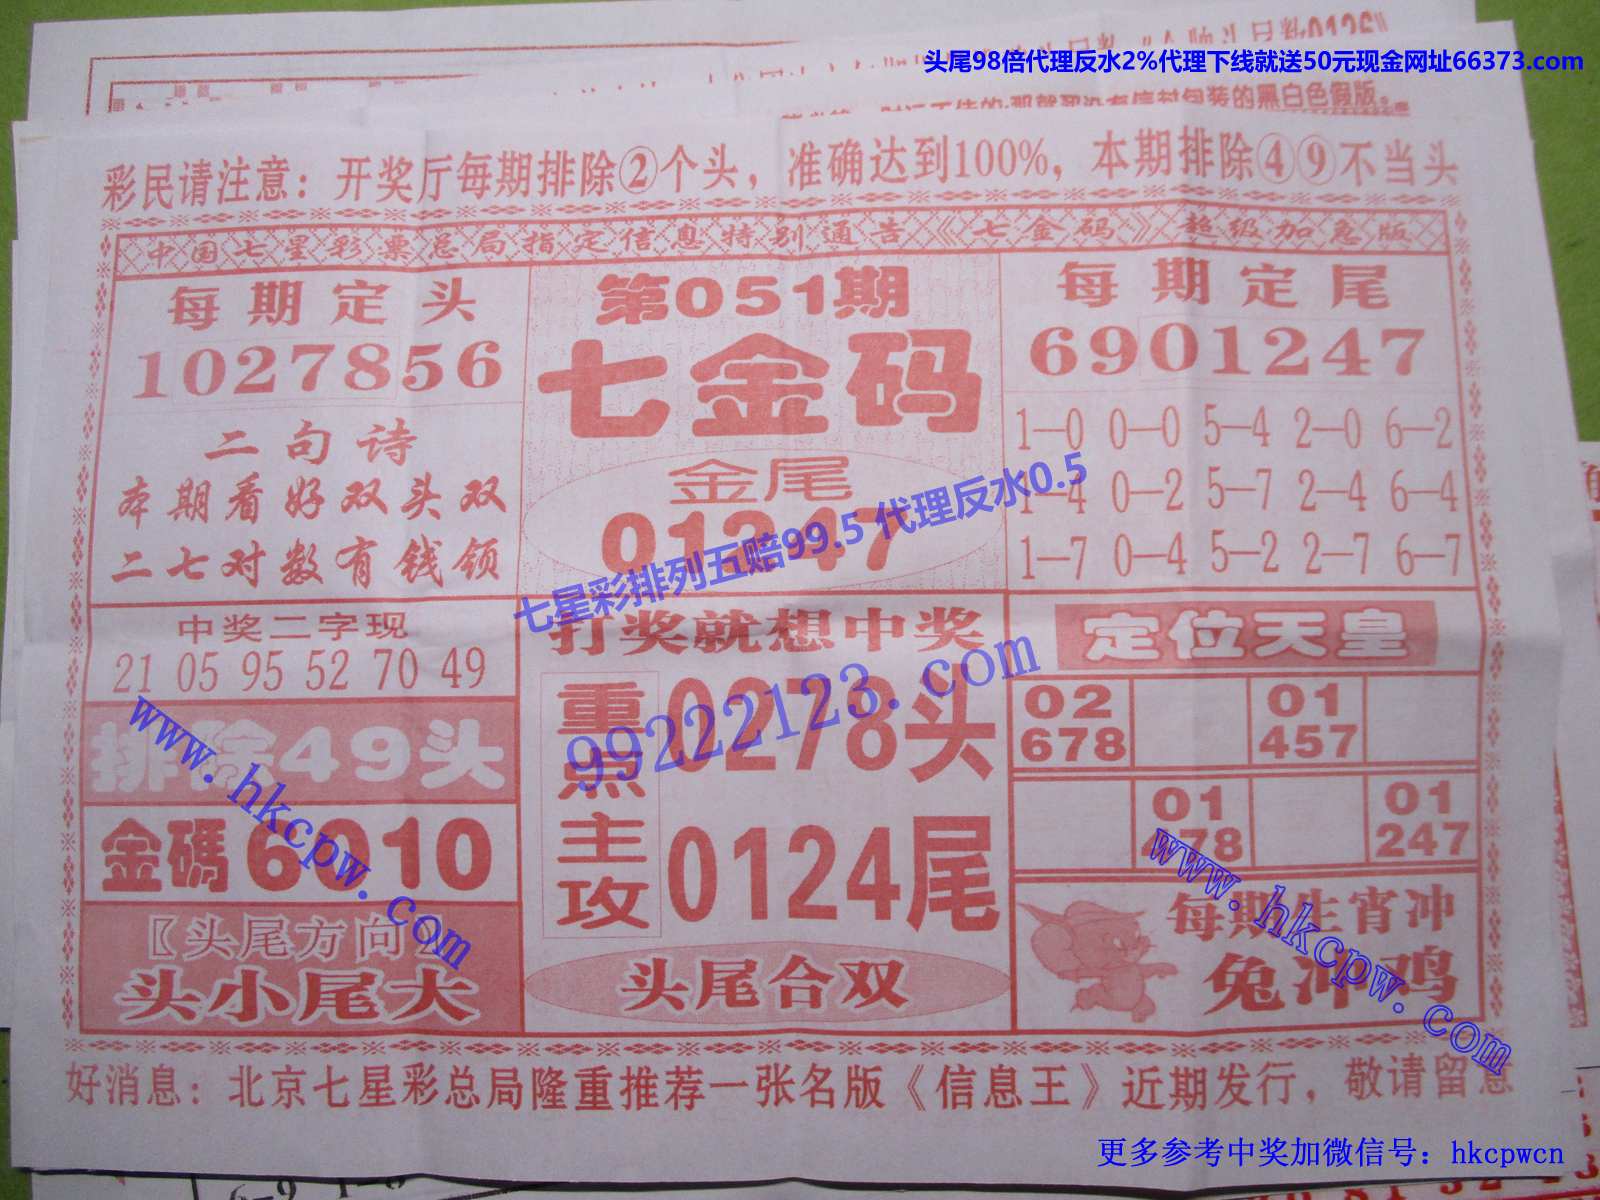 头尾98倍代理反水2%代理下线就送50元现金网址66373.com
彩民请注意：开奖厅每期排除②个头，准确达到100%，本期排除④⑨不当头
中国七星彩票总局指定信息特别通告《七金码》超级加急版
每期定头
1027856
二句诗
本期看好双头双
二七对数有钱领
第051期
七金码
金尾
01247
每期定尾
6901247
1—0 0—0 5—4 2—0 6—2
1—4 0—2 5—7 2—4 6—4
1—7 0—4 5—2 2—7 6—7
七星彩排列五赔99.5 代理反水0.5
中奖二字现
21 05 95 52 70 49
排除49头
金碼6010
〖头尾方向〗
头小尾大
打奖就想中奖
重点主攻
0278头
0124尾
头尾合双
99222123.com
定位天皇
02
678
01
457
01
478
01
247
每期生肖冲
兔冲鸡
www.hkcpw.com
www.hkcpw.com
好消息：北京七星彩总局隆重推荐一张名版《信息王》近期发行，敬请留意
更多参考中奖加微信号：hkcpwcn
6—9 1—8